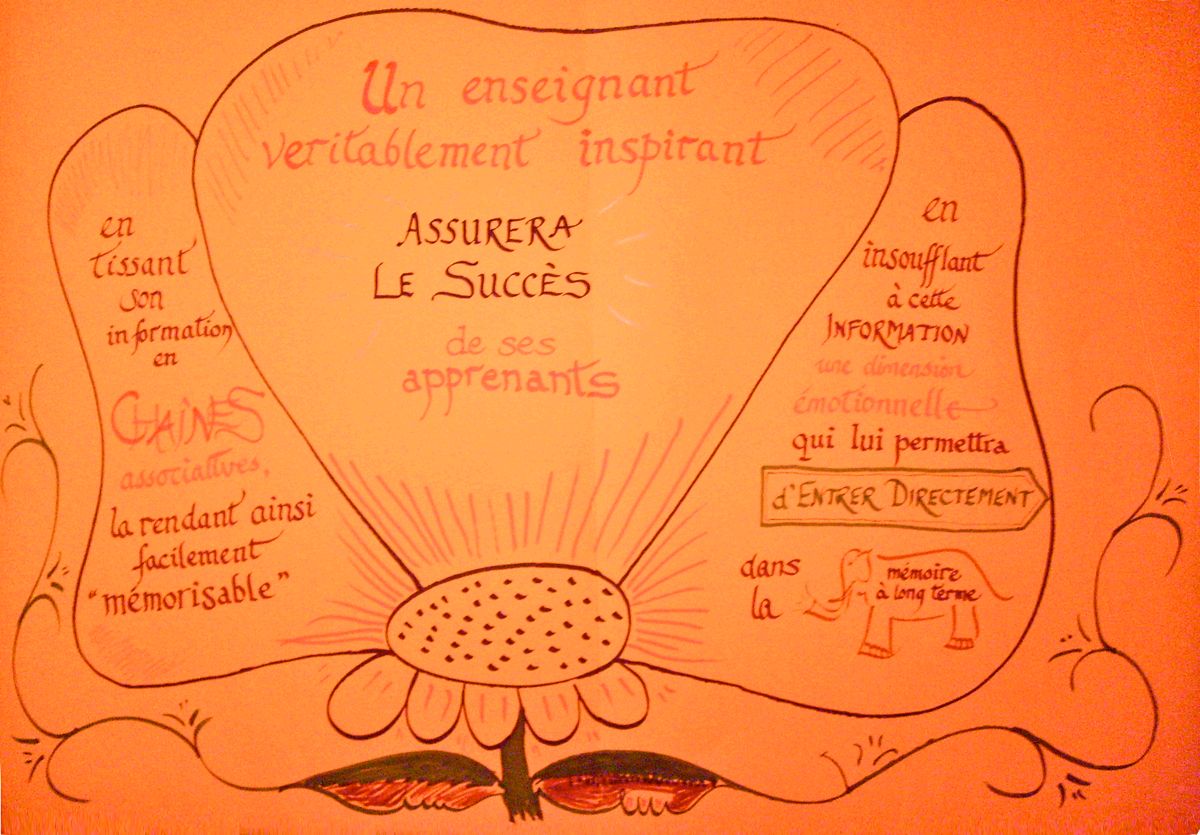 Un enseignant
veritablement inspirant
ASSURERA
LE SUCCÈS
de ses
apprenants
en
tissant
son
information
en
CHAÎNES
associatives,
la rendant ainsi
facilement
"mémorisable"
en
insoufflant
à cette
INFORMATION
une dimension
émotionnelle
qui lui permettra
d'ENTRER DIRECTEMENT
dans
la
mémoire
à long terme